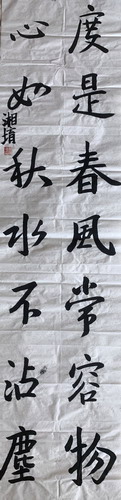 度是春風常容物
心如秋水不沾塵
湘堉